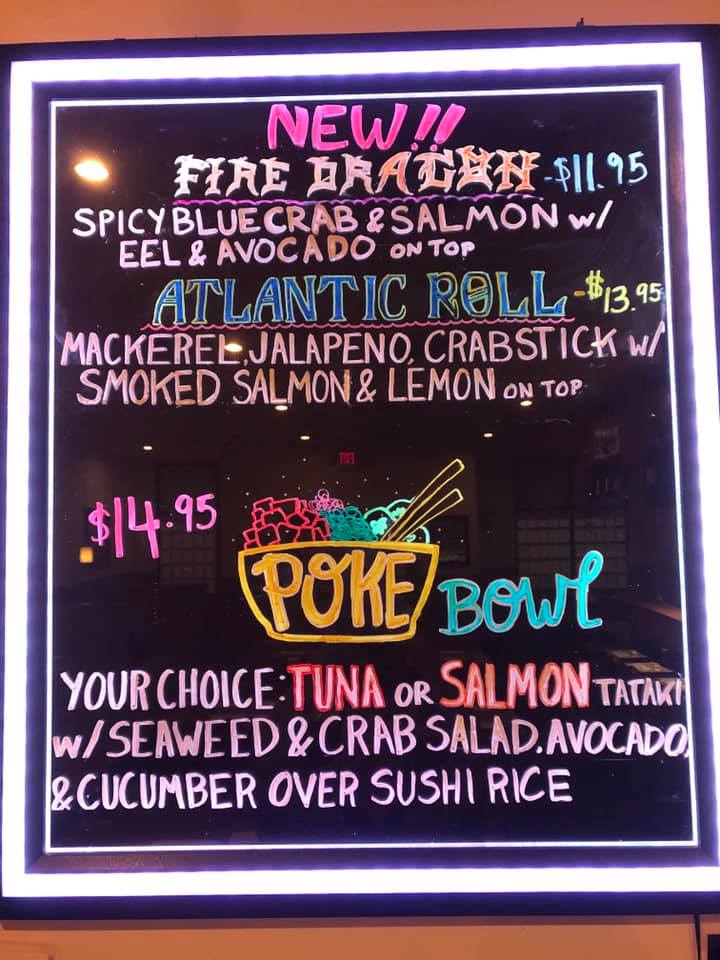 NEW!!
FIRE DRAGON -$11.95
SPICY BLUE CRAB & SALMON w/
EEL & AVOCADO ON TOP
ATLANTIC ROLL -$13.95
MACKEREL, JALAPENO, CRABSTICK w/
SMOKED SALMON & LEMON ON TOP
$14.95
POKE BOWL
YOUR CHOICE: TUNA OR SALMON TATAKI
w/ SEAWEED & CRAB SALAD, AVOCADO,
& CUCUMBER OVER SUSHI RICE